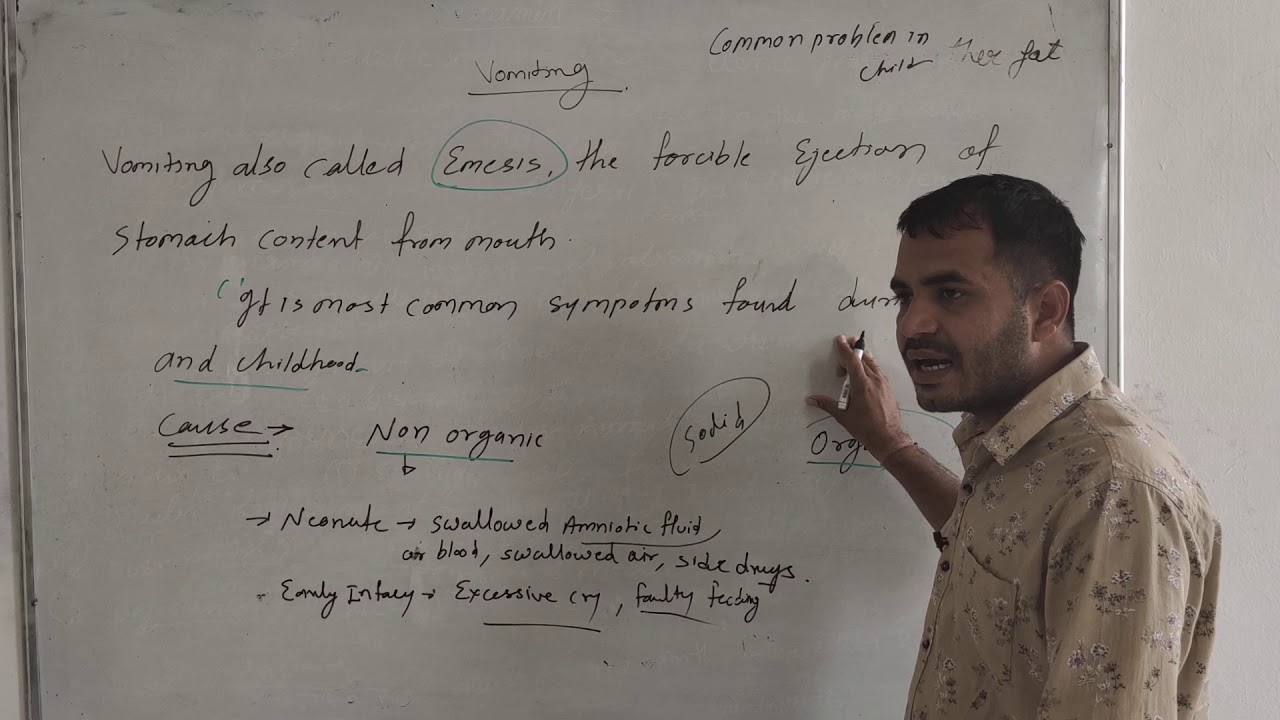 Common problem in
child
Vomiting
Vomiting also called Emesis, the forcible Ejection of
Stomach content from mouth.
It is most common sympotms found
and childhood
Cause → Non organic
→ Neonate → swallowed Amniotic fluid,
blood, swallowed air, side drugs.
Early Intacy → Excessive cry, faulty feeding